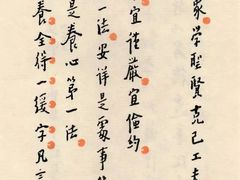 家學聖賢克己工夫
宜謹嚴宜儉約
一法安詳是處事第
是養心第一法
養全得一緩字凡言